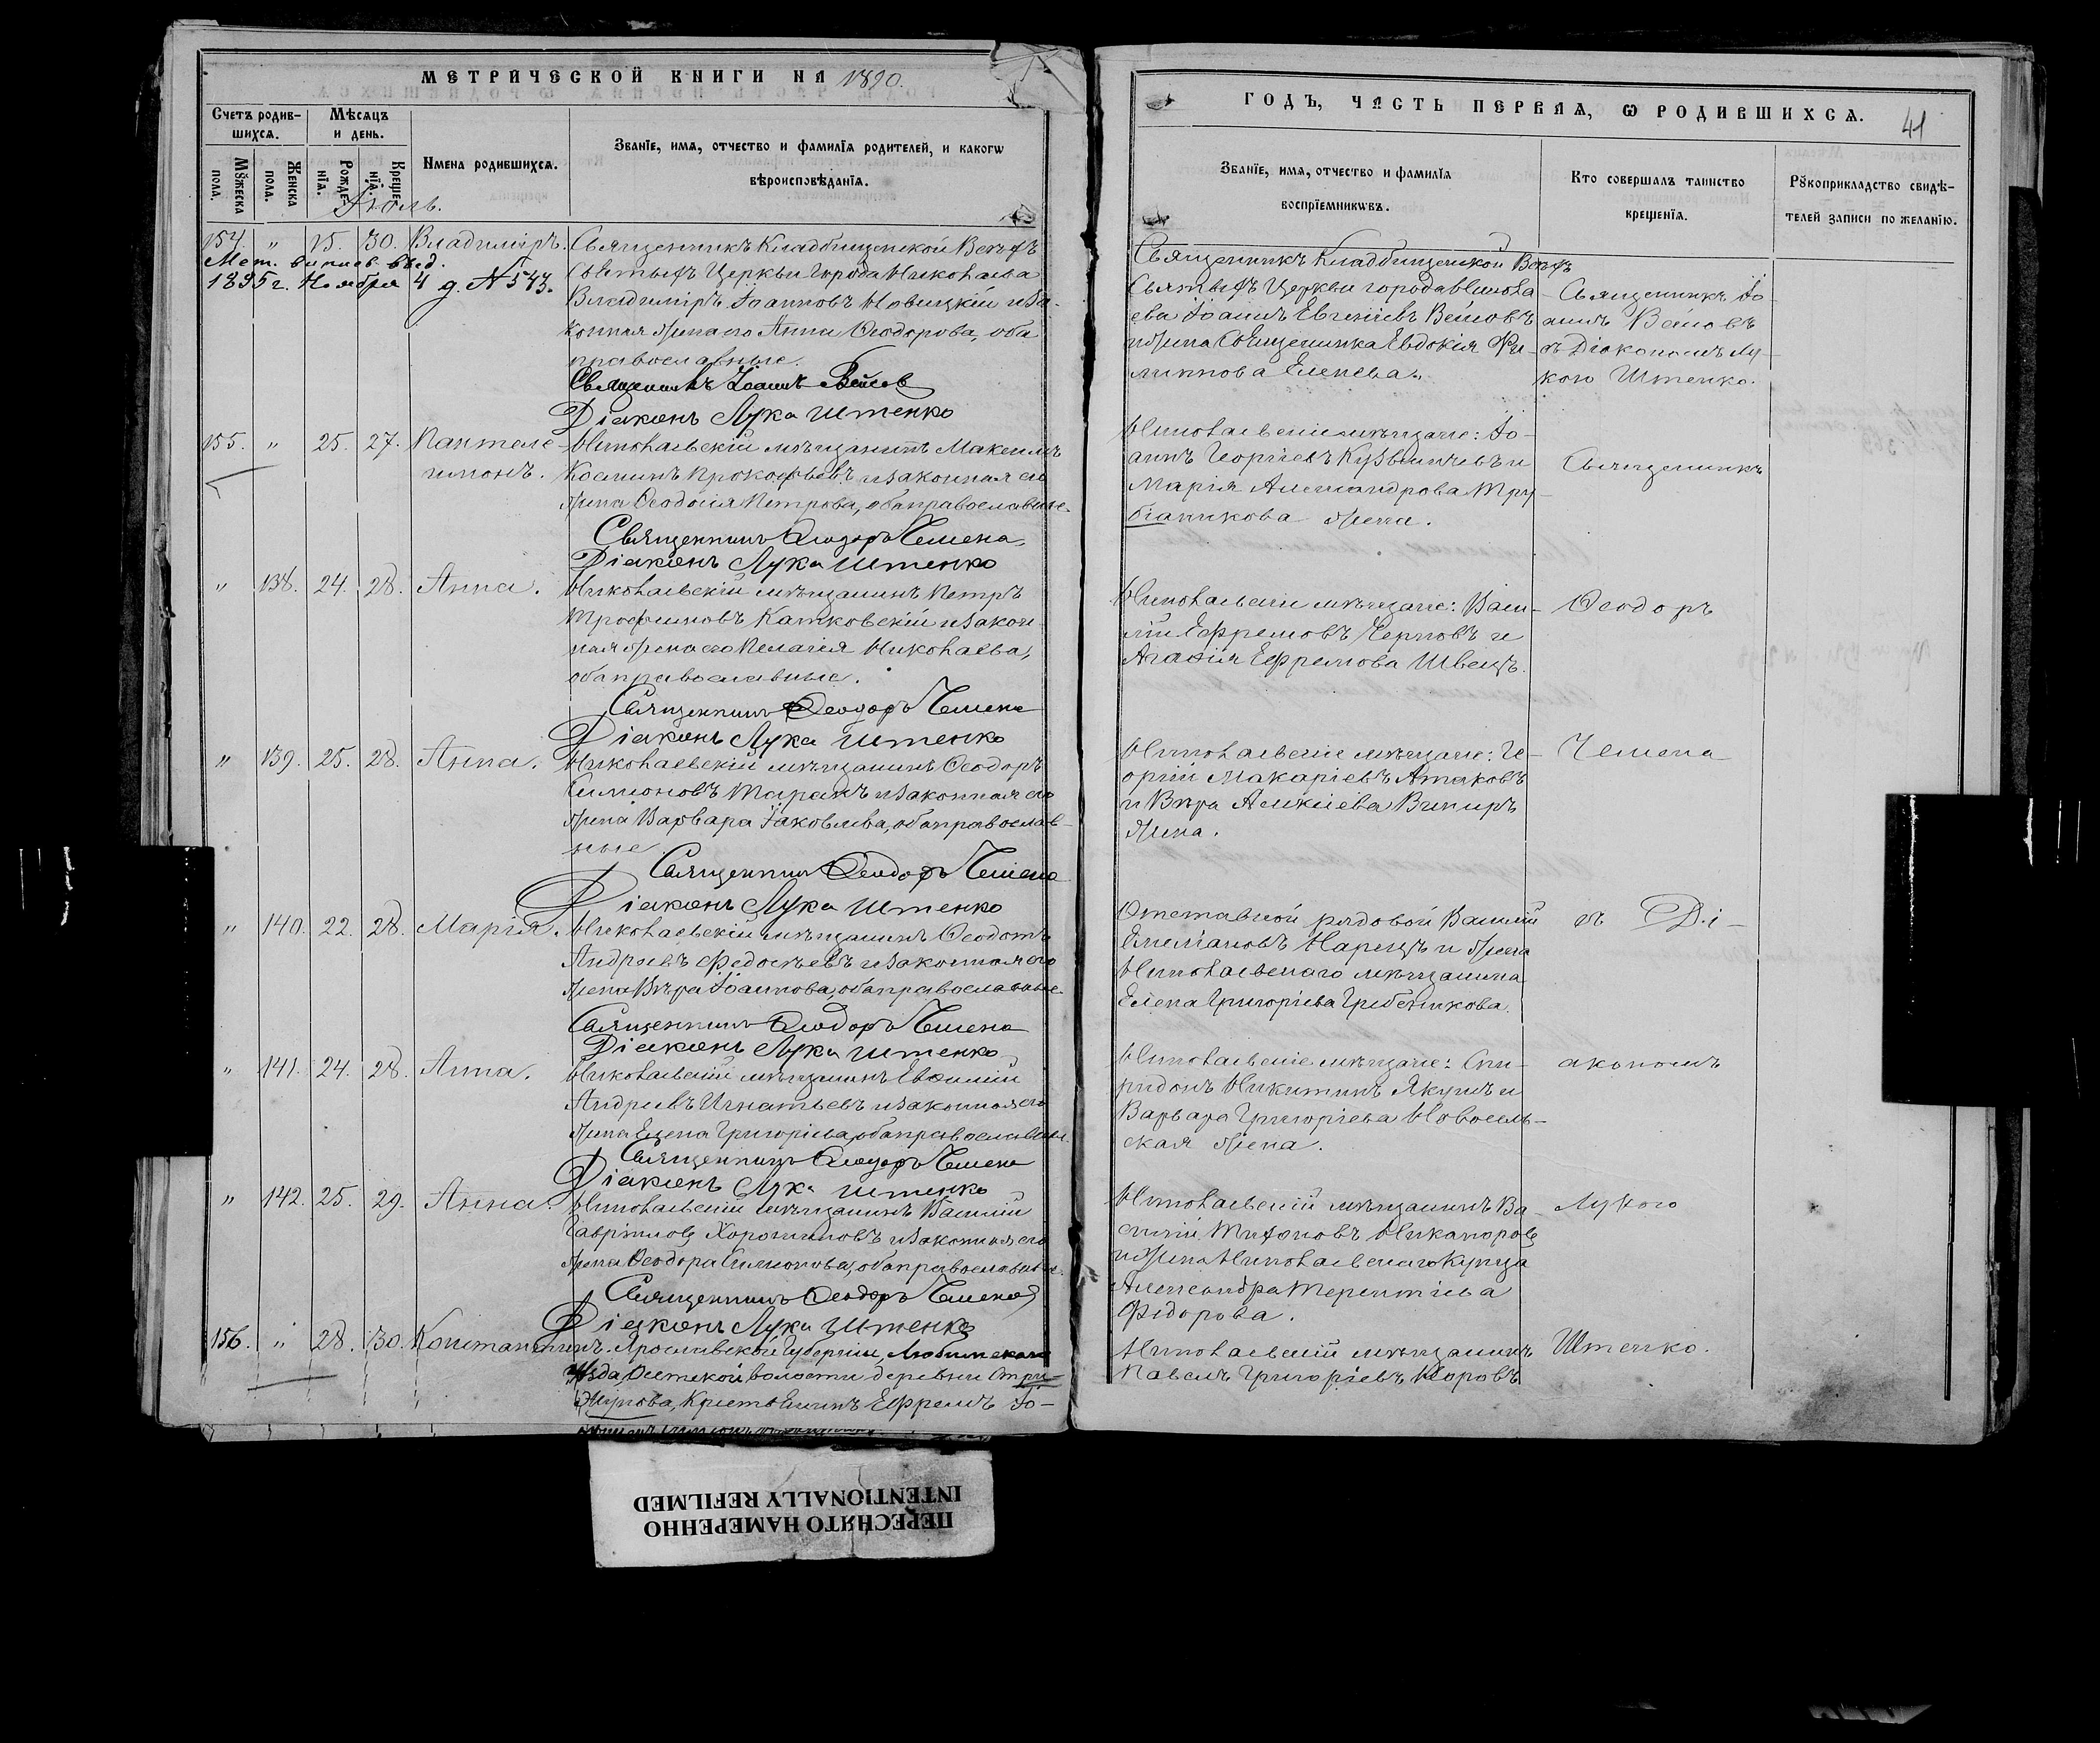 МЕТРИЧЕСКОЙ КНИГИ НА 1890.
Счетъ родив-
шихся.
Мѣсяцъ
и день.
Мꙋжеска
пола.
Женска
пола.
Рожде-
нїя.
Креще-
нїя.
Имена родившихся.
Званїе, имя, отчество и фамилїя родителей, и какогѡ
вѣроисповѣданїя.
Іюль.
154. " 15. 30. Владиміръ.
Мет. выпись выд.
1895 г. Ноября 4 д. № 573.
Священникъ Кладбищенской Всѣхъ
Святыхъ Церкви города Николаева
Владиміръ Іоанновъ Новицкій и за-
конная жена его Анна Ѳеодорова, оба
православные.
Священникъ Іоаннъ Вейсовъ
Діаконъ Лука Штенко
155. " 25. 27. Пантеле-
имонъ.
Николаевскій мѣщанинъ Максимъ
Косминъ Прокофьевъ и законная его
жена Ѳеодосія Петрова, оба православные.
Священникъ Ѳеодоръ Чемена
Діаконъ Лука Штенко
" 138. 24. 28. Анна.
Николаевскій мѣщанинъ Петръ
Трофимовъ Катковскій и закон-
ная жена его Пелагія Николаева,
оба православные.
Священникъ Ѳеодоръ Чемена
Діаконъ Лука Штенко
" 139. 25. 28. Анна.
Николаевскій мѣщанинъ Ѳеодоръ
Симіоновъ Таранъ и законная его
жена Варвара Іаковлева, оба православ-
ные.
Священникъ Ѳеодоръ Чемена
Діаконъ Лука Штенко
" 140. 22. 28. Марія.
Николаевскій мѣщанинъ Ѳеодотъ
Андреевъ Федосѣевъ и законная его
жена Вѣра Іоаннова, оба православные.
Священникъ Ѳеодоръ Чемена
Діаконъ Лука Штенко
" 141. 24. 28. Анна.
Николаевскій мѣщанинъ Евѳимій
Андреевъ Игнатьевъ и законная его
жена Елена Григоріева, оба православные.
Священникъ Ѳеодоръ Чемена
Діаконъ Лука Штенко
" 142. 25. 29. Анна.
Николаевскій мѣщанинъ Василій
Гавріиловъ Хорошиловъ и законная его
жена Ѳеодора Симіонова, оба православные.
Священникъ Ѳеодоръ Чемена
Діаконъ Лука Штенко
156. " 28. 30. Константинъ.
Ярославской Губерніи, Любимскаго
Уѣзда, волости деревни
Крестьянинъ Ефремъ Іо-
ГОДЪ, ЧАСТЬ ПЕРВАЯ, Ѡ РОДИВШИХСЯ.
41
Званїе, имя, отчество и фамилїя
воспрїемникѡвъ.
Кто совершалъ таинство
крещенїя.
Рꙋкоприкладство свидѣ-
телей записи по желанїю.
Священникъ Кладбищенской Всѣхъ
Святыхъ Церкви города Никола-
ева Іоаннъ Евгеніевъ Вейсовъ
и жена Священника Евдокія Фи-
липпова Еленева.
Священникъ Іо-
аннъ Вейсовъ
съ Діакономъ Лу-
кою Штенко.
Николаевскіе мѣщане: Іо-
аннъ Георгіевъ Кузьмичевъ и
Марія Александрова Тру-
бганикова жена.
Священникъ
Николаевскіе мѣщане: Васи-
лій Ефремовъ Черновъ и
Агафія Ефремова Швецъ.
Ѳеодоръ
Николаевскіе мѣщане: Ге-
оргій Макаріевъ Атаковъ
и Вѣра Алексіева Виниръ
жена.
Чемена
Отставной рядовой Василій
Емеліановъ Нарецъ и жена
Николаевскаго мѣщанина
Елена Григоріева Гребенникова.
съ Ді-
Николаевскіе мѣщане: Спи-
ридонъ Никитинъ Якунъ и
Варвара Григоріева Новосель-
ская жена.
акономъ
Николаевскій мѣщанинъ Ва-
силій Тихоновъ Никаноровъ
и жена Николаевскаго Купца
Александра Терентіева
Федорова.
Лукою
Николаевскій мѣщанинъ
Павелъ Григоріевъ Коровъ
Штенко.
ПЕРЕСНЯТО НАМЕРЕННО
INTENTIONALLY REFILMED